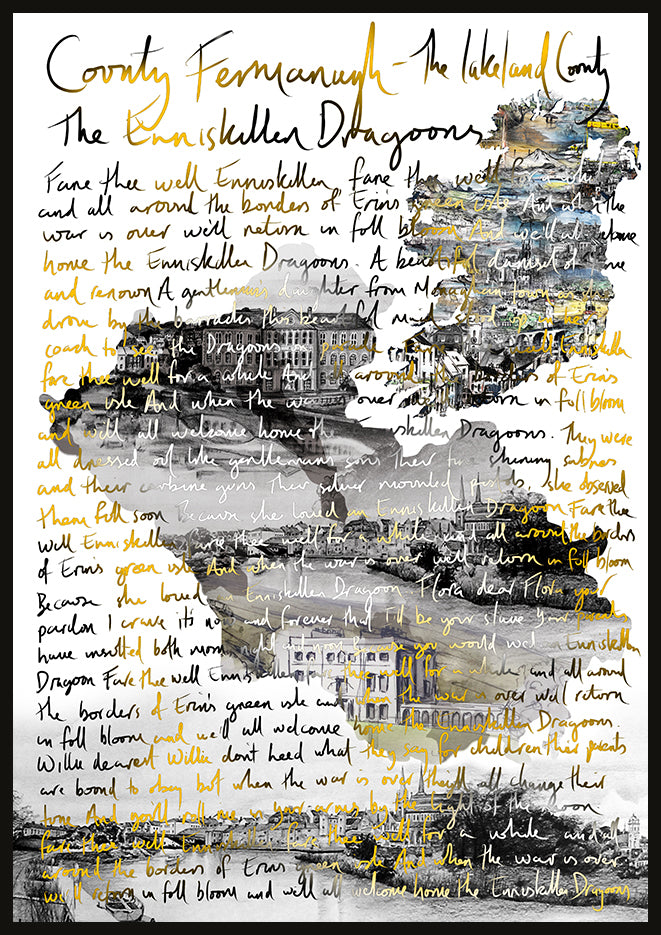 County Fermanagh - The Lakeland County
The Enniskillen Dragoons
Fare thee well Enniskillen fare thee well for a while
and all around the borders of Erin's green isle And when the
war is over we'll return in full bloom And we'll all welcome
home the Enniskillen Dragoons. A beautiful damsel of fame
and renown A gentleman's daughter from Monaghan town as she
drove by the barracks this beautiful maid stood up in her
coach to see the Dragoons on Enniskillen
fare thee well for a while And all around the borders of Erin's
green isle And when the war is over we'll return in full bloom
and we'll all welcome home the Enniskillen Dragoons. They were
all dressed out like gentlemans sons their fine shining sabres
and their carbine guns Their silver mounted pistols, she observed
them full soon Because she loved an Enniskillen Dragoon Fare thee
well Enniskillen fare thee well for a while and all around the borders
of Erin's green isle And when the war is over we'll return in full bloom
Because she loved an Enniskillen Dragoon. Flora dear Flora your
pardon I crave it's now and forever that I'll be your slave Your parents
have insulted both morning night and noon Because you would wed an Enniskillen
Dragoon Fare thee well Enniskillen fare thee well for a while and all around
the borders of Erin's green isle and when the war is over we'll return
in full bloom and we'll all welcome home the Enniskillen Dragoons.
Willie dearest Willie don't heed what they say for children their parents
are bound to obey but when the war is over they'll all change their
tune And you'll roll me in your arms by the light of the moon
fare thee well Enniskillen fare thee well for a while and all
around the borders of Erins green isle And when the war is over
we'll return in full bloom and we'll all welcome home the Enniskillen Dragoons